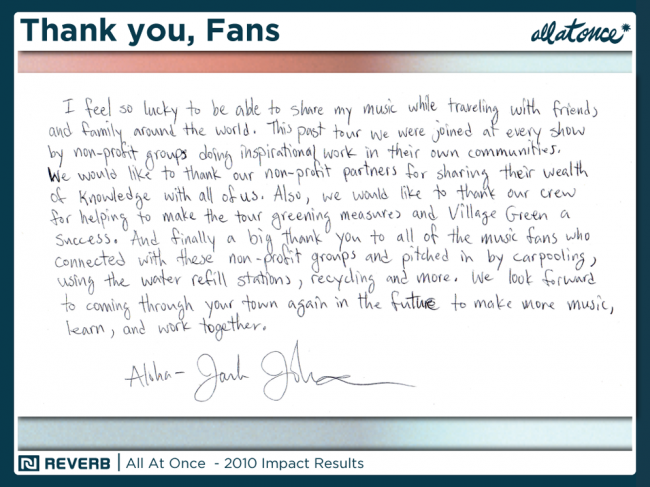 Thank you, Fans
allatonce*
I feel so lucky to be able to share my music while traveling with friends
and family around the world. This past tour we were joined at every show
by non-profit groups doing inspirational work in their own communities.
We would like to thank our non-profit partners for sharing their wealth
of knowledge with all of us. Also, we would like to thank our crew
for helping to make the tour greening measures and Village Green a
success. And finally a big thank you to all of the music fans who
connected with these non-profit groups and pitched in by carpooling,
using the water refill stations, recycling and more. We look forward
to coming through your town again in the future to make more music,
learn, and work together.
Aloha- Jack Johnson
REVERB | All At Once - 2010 Impact Results